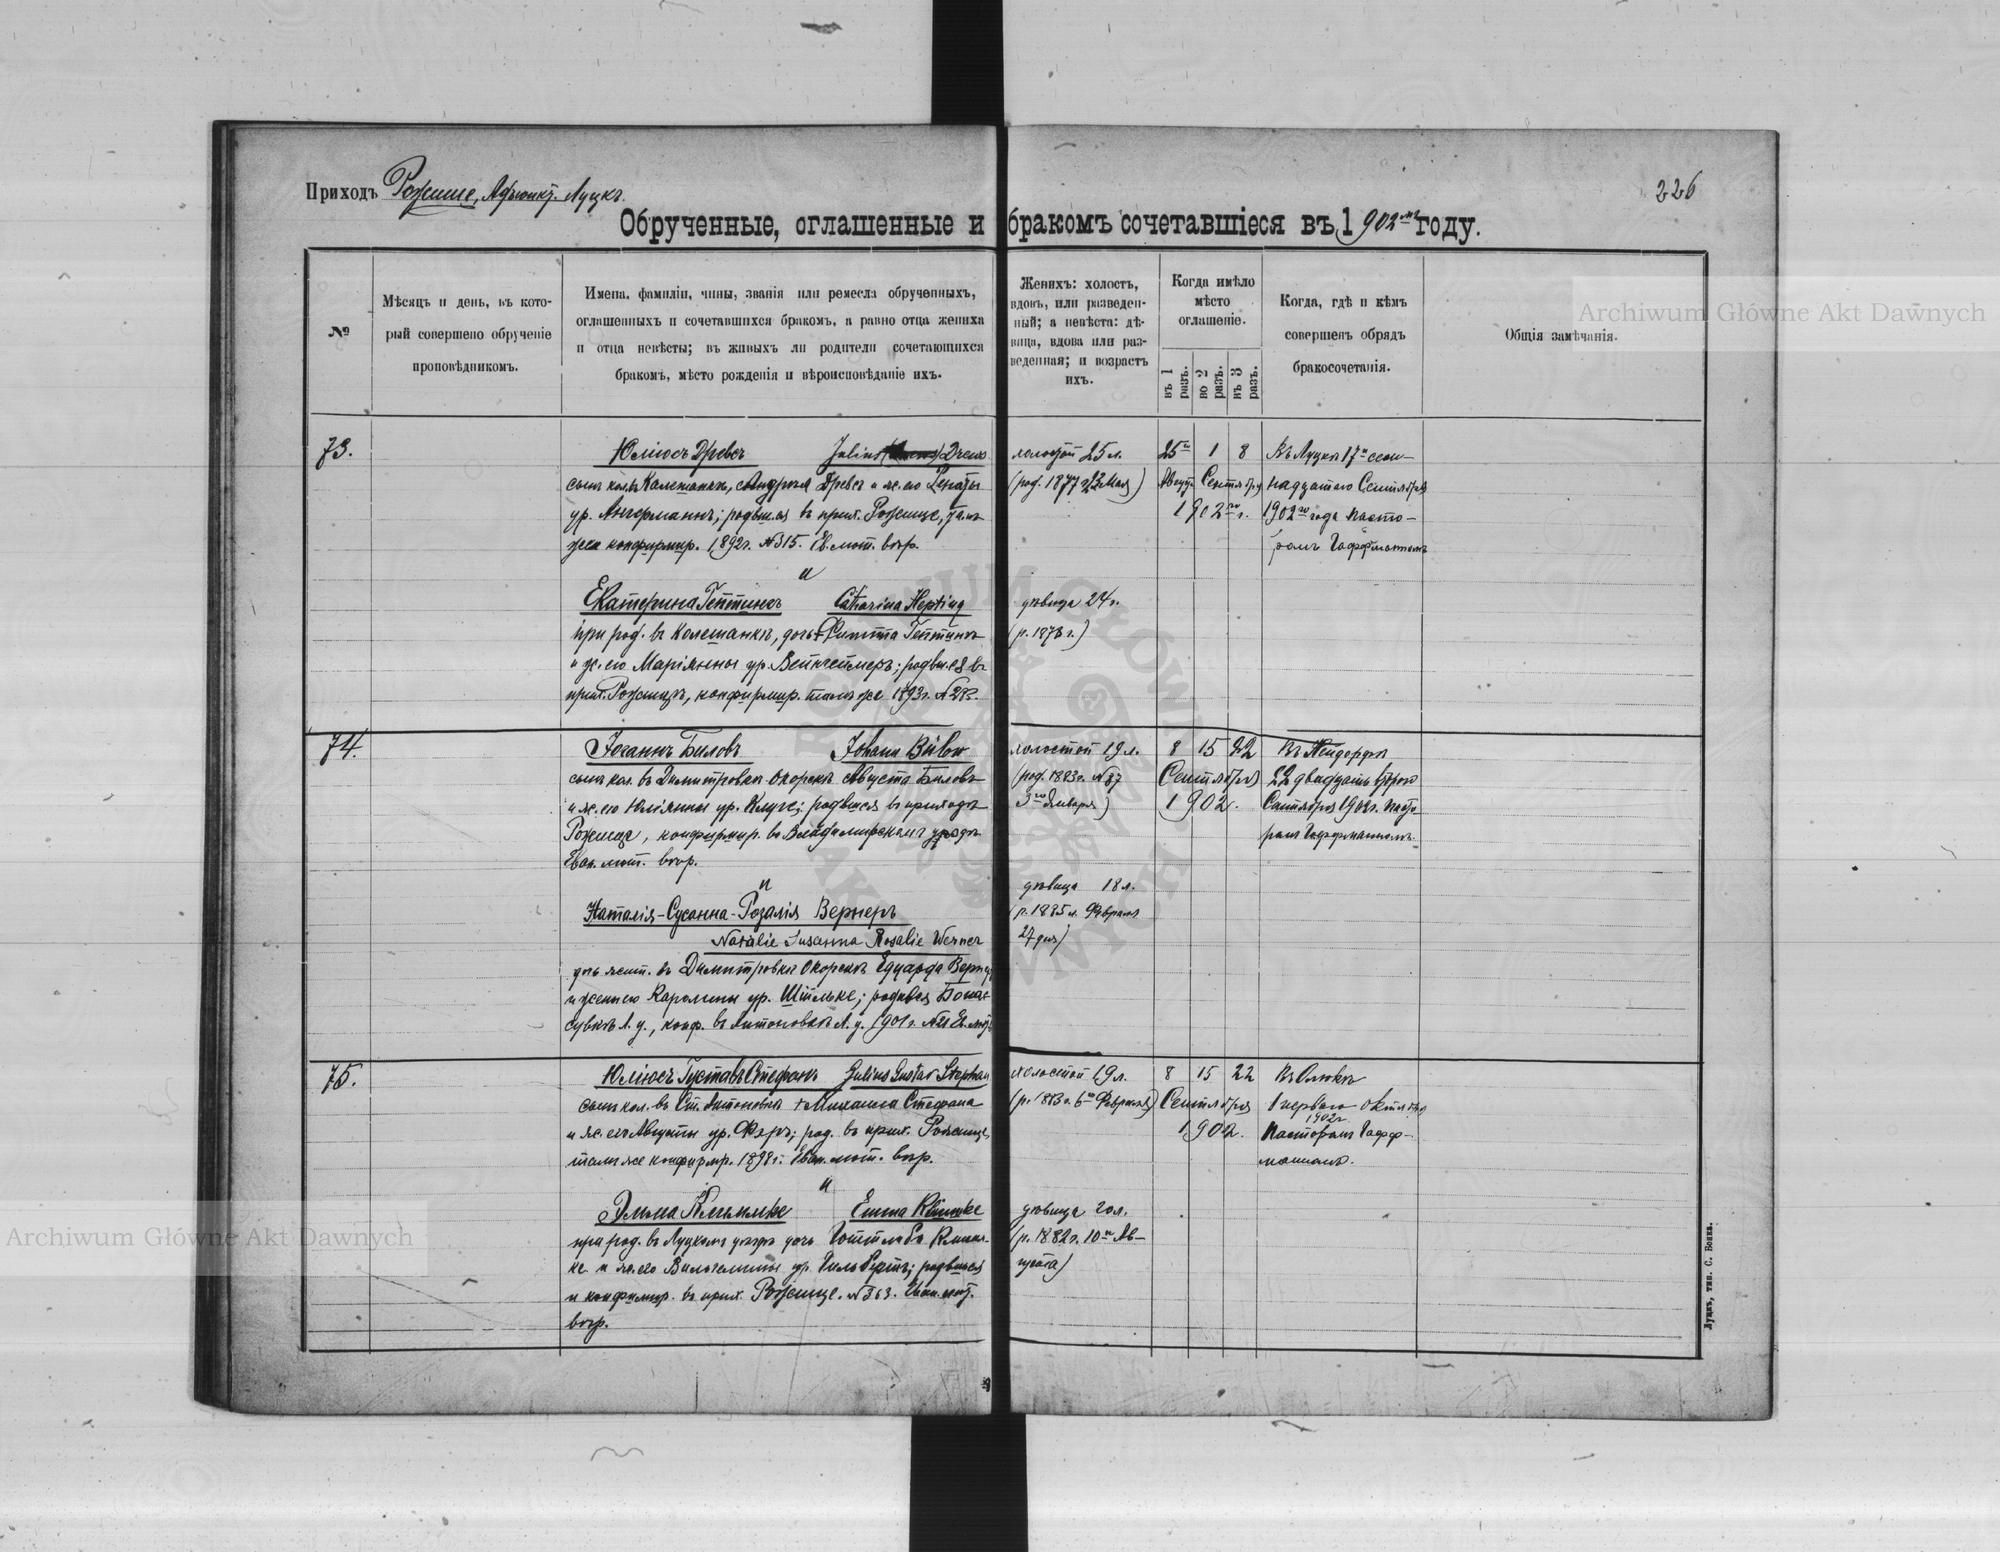 Archiwum Główne Akt Dawnych
Приходъ Рожище, Адъюнкт. Луцкъ.
226
Обрученные, оглашенные и бракомъ сочетавшіеся въ 1902мъ году.
№
Мѣсяцъ и день, въ кото-
рый совершено обрученіе
проповѣдникомъ.
Имена, фамиліи, чины, званія или ремесла обрученныхъ,
оглашенныхъ и сочетавшихся бракомъ, а равно отца жениха
и отца невѣсты; въ живыхъ ли родители сочетающихся
бракомъ, мѣсто рожденія и вѣроисповѣданіе ихъ.
Женихъ: холостъ,
вдовъ, или разведен-
ный; а невѣста: дѣ-
вица, вдова или раз-
веденная; и возрастъ
ихъ.
Когда имѣло
мѣсто
оглашеніе.
въ 1 разъ.
во 2 разъ.
въ 3 разъ.
Когда, гдѣ и кѣмъ
совершенъ обрядъ
бракосочетанія.
Общія замѣчанія.
73.
Юліусъ Древсъ Julius Drews
сынъ кол. Андрея Древсъ и ж. его Ренаты
ур. Ангерманнъ; родвш.ся въ прих. Рожище, там-
же конфирмир. 1892г. №315. Ев. лют. вѣр.
и
Екатерина Гептингъ Catharina Hepting
при род. въ Колешанкѣ, дочь Гептингъ
и ж. его Маріянны ур. родвш.ся въ
прих. Рожищѣ, конфирмир. тамъ же 1893г.
холостой 25 л.
(род. 1877 г. 23 Мая)
дѣвица 24 г.
(р. 1878 г.)
25го 1 8
Август. Сентября
1902го г.
Въ Луцкѣ 17го сем-
надцатаго Сентября
1902го года Пасто-
ромъ Гаффманномъ
74.
Іоганнъ Биловъ Johann Bülow
сынъ кол. въ Димитровка-Окорскъ Августа Биловъ
и ж. его Юліянны ур. Клуге; родвшся въ приходѣ
Рожище, конфирмир. въ Владимирскомъ уѣздѣ
Еван. лют. вѣр.
и
Наталія-Сусанна-Розалія Вернеръ
Natalie Susanna Rosalie Werner
дочь жит. въ Димитровка Окорскъ Едуарда Вернер
и жены его Каролины ур. Штельке; родвшся
Л. у., конф. въ Антоновкѣ Л. у. 1901 г. №21 Ев. лют.
холостой 19 л.
(род. 1883г. №87
3го Января)
дѣвица 18 л.
(р. 1885 г. Февраля
27 дня)
8 15 22
Сентября
1902.
Въ Нейдорфѣ
22 двадцать второго
Сентября 1902г. Пасто-
ромъ Гаффманномъ.
75.
Юліусъ Густавъ Стефанъ Julius Gustav Stephan
сынъ кол. въ Ст. Антоновкѣ †Михаила Стефана
и ж. его Августы ур. Фэръ; род. въ прих. Рожище,
тамъ же конфирмир. 1898 г. Еван. лют. вѣр.
и
Эмма Климпке Emma Klimpke
при род. въ Луцкомъ уѣздѣ дочь Готтлиба Климп-
ке и ж. его Вильгелмины ур. Гильбертъ; родвшся
и конфирмир. въ прих. Рожище. №363. Еван. лют.
вѣр.
холостой 19 л.
(р. 1883г. 6го Февраля)
дѣвица 20 л.
(р. 1882г. 10го Ав-
густа)
8 15 22
Сентября
1902.
Въ Олыкѣ
1 перваго октября
1902г.
Пасторомъ Гафф-
манномъ.
Луцкъ, тип. С. Бокка.
Archiwum Główne Akt Dawnych